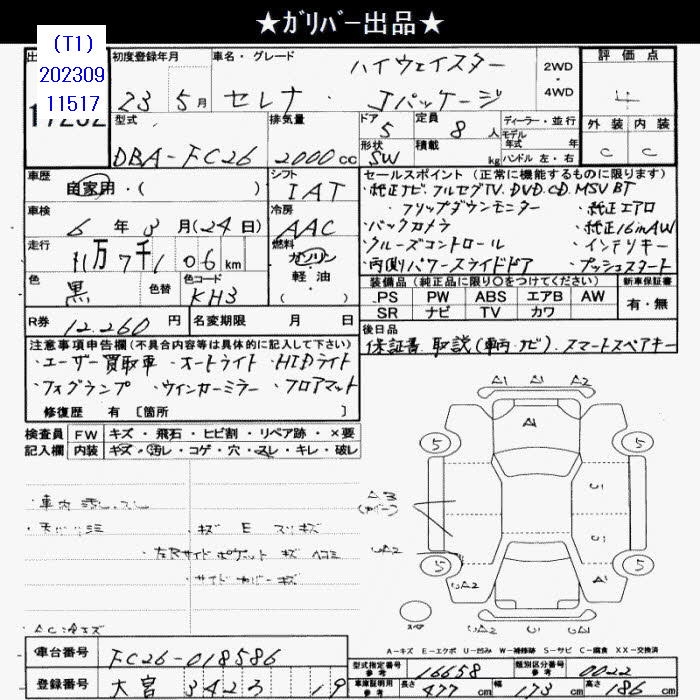 ★ｶﾞﾘﾊﾞｰ出品★
(T1)
202309
11517
初度登録年月
車名・グレード
評価点
23 5月
セレナ ハイウェイスター
Jパッケージ
2WD
・
4WD
4
型式
排気量
ドア 5
定員 8 人
ディーラー・並行
外装
内装
DBA-FC26
2000cc
形状 SW
積載 kg
モデル年式 年
ハンドル 左・右
C
C
車歴
自家用・( )
シフト
IAT
セールスポイント（正常に機能するものに限ります）
・純正ナビ.フルセグTV.DVD.CD.MSV BT
・フリップダウンモニター
・純正エアロ
・バックカメラ
・純正16inAW
・クルーズコントロール
・インテリキー
・両側パワースライドドア
・プッシュスタート
車検
6年3月(24日)
冷房
AAC
走行
11万7千106km
燃料
ガソリン
軽・油
( )
色
黒
色替
色コード
KH3
装備品（純正品に限り○をつけてください）
新車保証書
PS PW ABS エアB AW
SR ナビ TV カワ
有・無
R券 12.260円
名変期限 月 日
後日品
保証書.取説(車両.ナビ).スマートスペアキー
注意事項申告欄(不具合内容等は具体的に記入して下さい)
・ユーザー買取車・オートライト・HIDライト
・フォグランプ・ウインカーミラー・フロアマット
修復歴 有 [箇所 ]
検査員 FW キズ・飛石・ヒビ割・リペア跡・×要
記入欄 内装 キズ・汚レ・コゲ・穴・スレ・キレ・破レ
A1 A1 A2
A1
5 5
・車内
A3
(カバー)
U1
・キズ E スリキズ
・左Rサイドポケット キズ ヘコミ
UA2
U1
・サイドカバーキズ
5 5
UA2
A1
UA2 A2
スペア
A-キズ E-エクボ U-凹み W-補修跡 S-サビ C-腐食 XX-交換済
車台番号 FC26-018586
型式指定番号 参考 16658
類別区分番号 参考 0022
登録番号 大宮 3423 19
車庫証明用 参考 長さ 477cm 幅 173cm 高さ 186cm